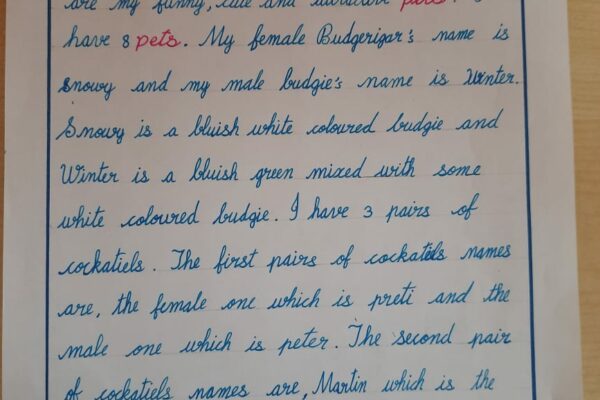 are my funny, cute and attractive pets. I
have 8 pets. My female Budgerigar's name is
snowy and my male budgie's name is Winter.
Snowy is a bluish white coloured budgie and
Winter is a bluish green mixed with some
white coloured budgie. I have 3 pairs of
cockatiels. The first pairs of cockatiels names
are, the female one which is preti and the
male one which is peter. The second pair
of cockatiels names are, Martin which is the